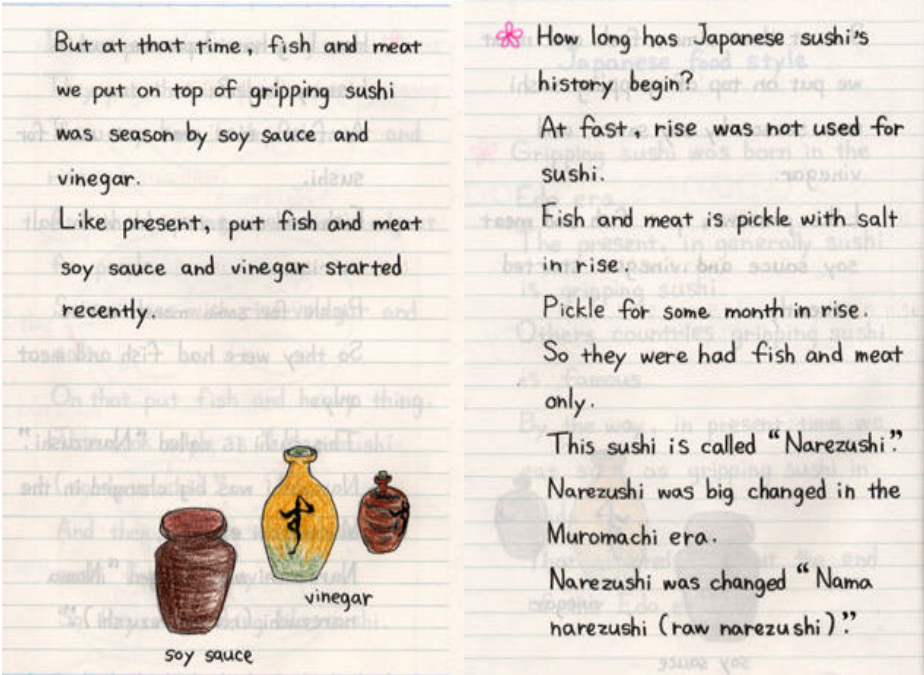 But at that time, fish and meat
we put on top of gripping sushi
was season by soy sauce and
vinegar.
Like present, put fish and meat
soy sauce and vinegar started
recently.
vinegar
soy sauce
How long has Japanese sushi's
history begin?
At fast, rise was not used for
sushi.
Fish and meat is pickle with salt
in rise.
Pickle for some month in rise.
So they were had fish and meat
only.
This sushi is called "Narezushi."
Narezushi was big changed in the
Muromachi era.
Narezushi was changed "Nama
narezushi (raw narezushi)."